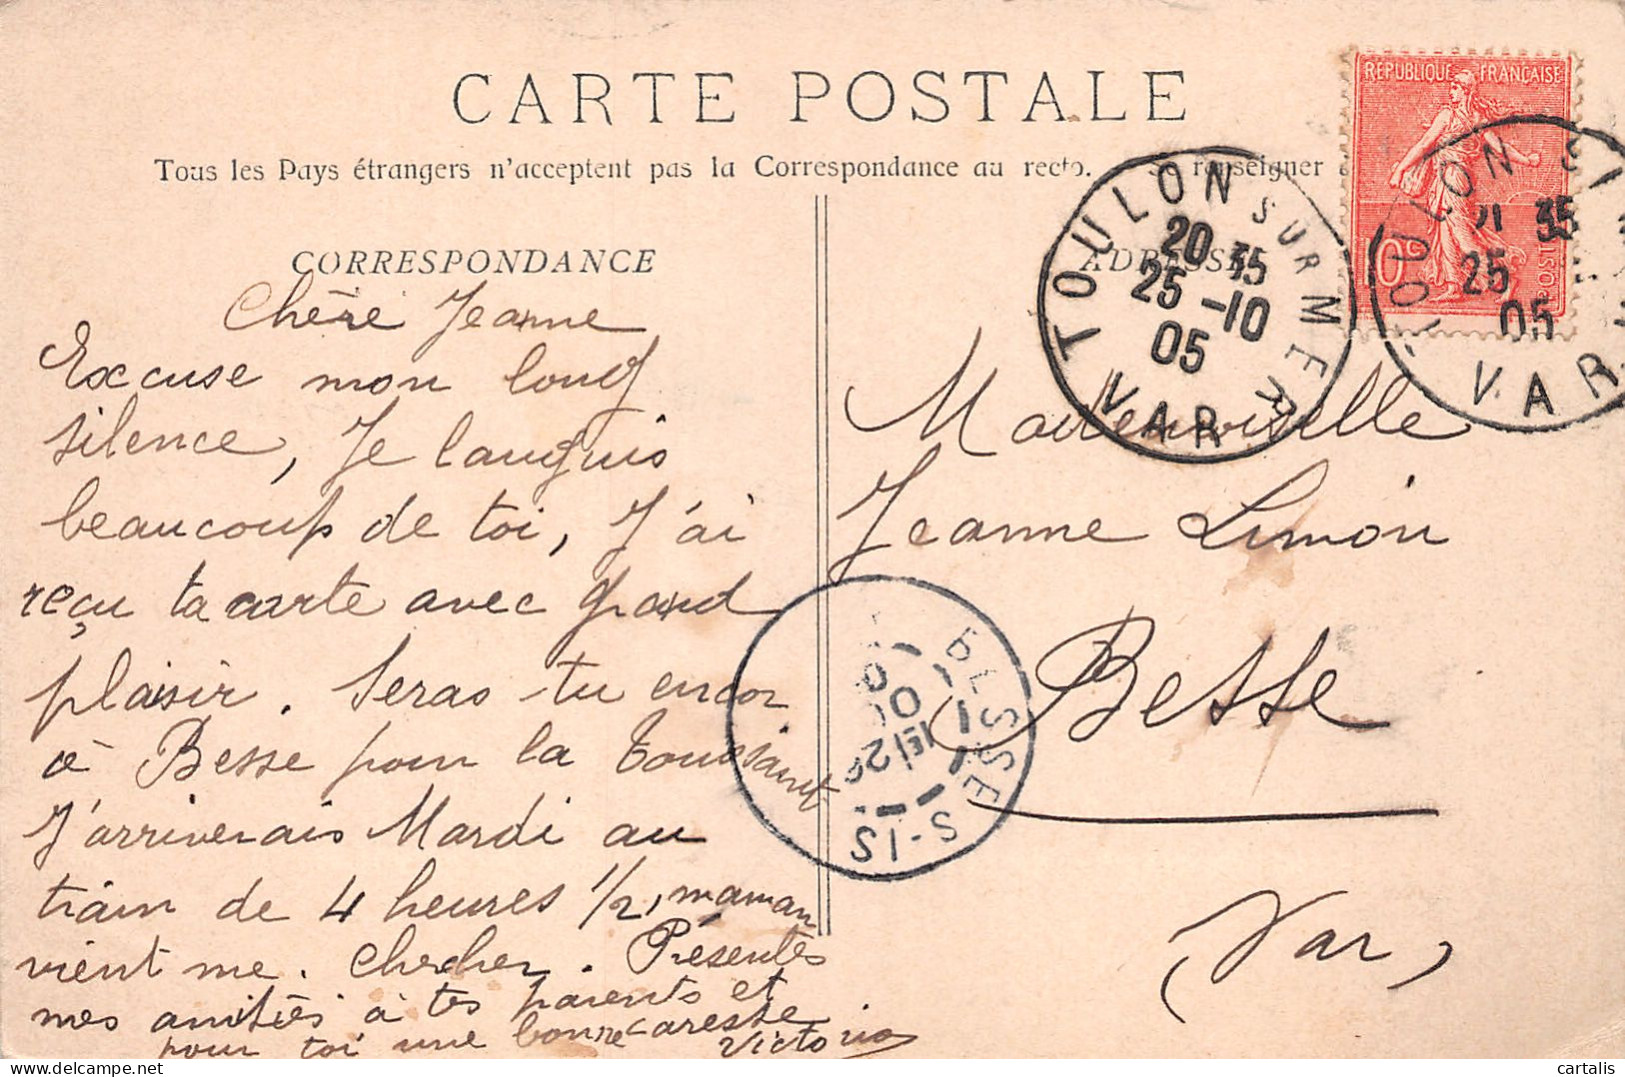 CARTE POSTALE
Tous les Pays étrangers n'acceptent pas la Correspondance au recto. Se renseigner
CORRESPONDANCE
Chère Jeanne
Excuse mon long
silence, Je languis
beaucoup de toi, J'ai
reçu ta carte avec grand
plaisir. Seras-tu encor
à Besse pour la Toussaint
J'arriverais Mardi au
train de 4 heures 1/2, maman
vient me. chercher. Présentes
mes amitiés à tes parents et
pour toi une bonne caresse
Victoria
ADRESSE
Mademoiselle
Jeanne Simon
Besse
(Var)
REPUBLIQUE FRANÇAISE
10c
POSTES
TOULON SUR MER
20 35
25 -10
05
VAR
TOULON
35
25
05
VAR
BESSE
S-IS
cartalis